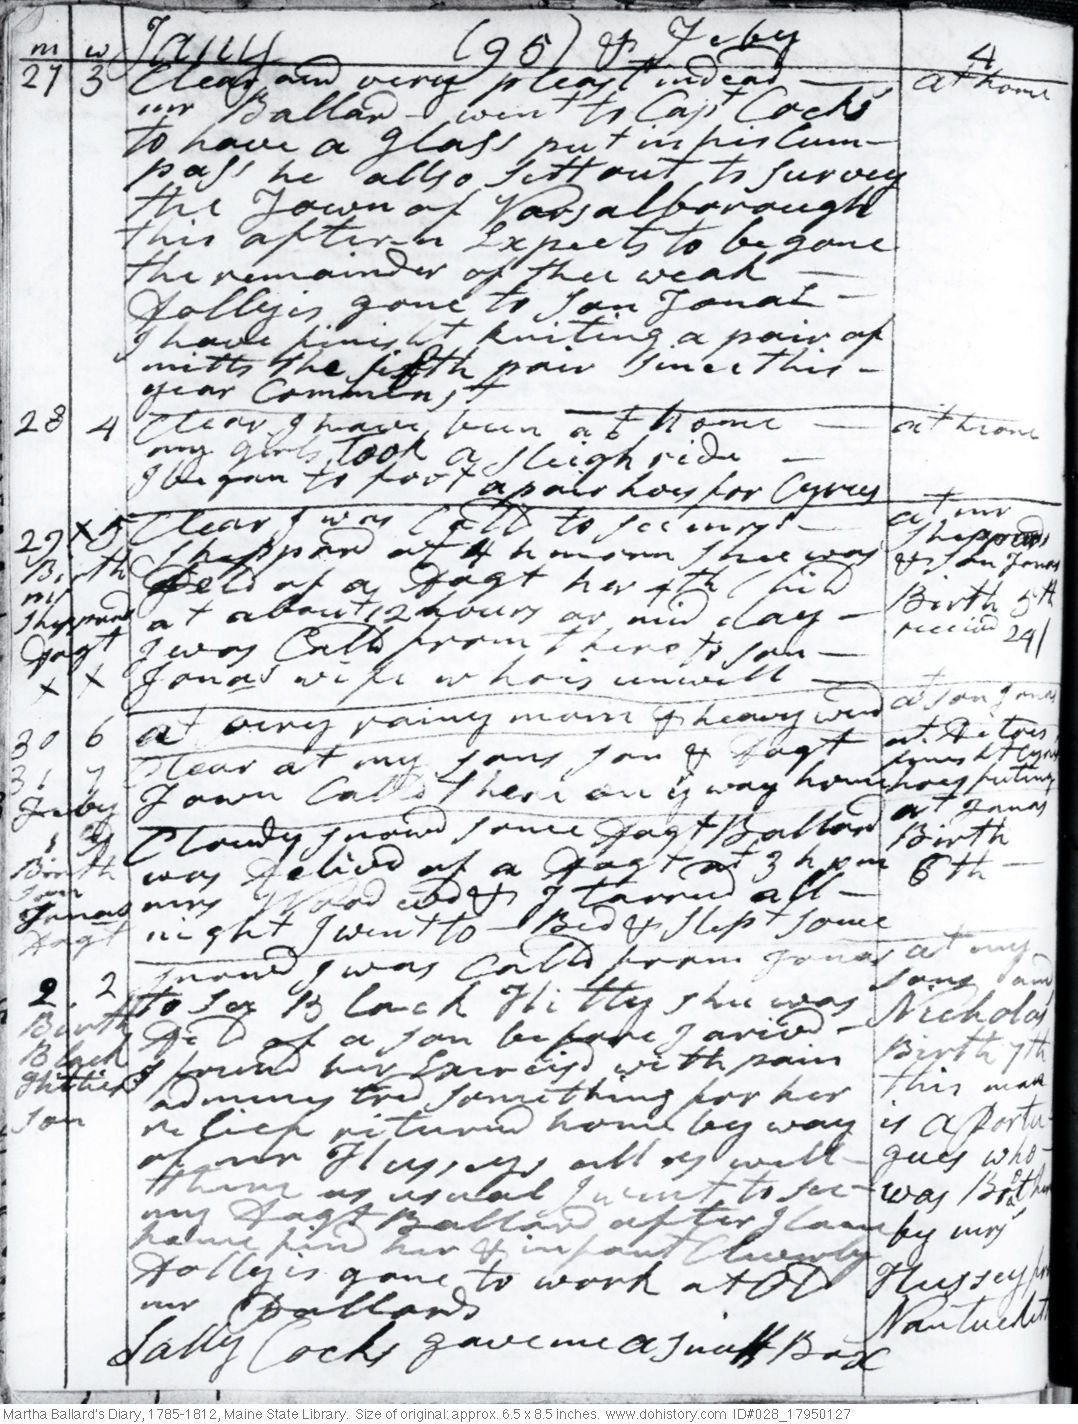 m w Jany (95) & Feby 4
27 3 Clear and very pleast indead — at home
mr Ballard went to Capt Cocks
to have a glass put in his Cum-
pass he allso sett out to survey
the Town of Vassalborough
this aftern Expects to be gone
the remainder of thee weak —
Dolly is gone to son Jonas —
I have finisht kniting a pair of
mitts the fifth pair since this -
year Commenst
28 4 Clear I have been at home — at home
my girls took a sleigh ride —
I began to foot a pair hoes for Cyrus
29 x 5 Clear I was Calld to see mrs — at mr
Birth Shepprd at 4 h morn Shee was Shepprds
mr Deld of a Dagt her 4th Child & son Jonas
Shepprds at about 12 hours or mid day — Birth 5th
Dagt I was Calld from there to son — receivd 24/
x x Jonas wife who is unwell —
30 6 at very rainy morn & heavy wind at son Jonas
31 7 Clear at my sons son & Dagt at Ditres finisht Cyrus
Feby Town Calld there on ye way home hoes futing
1 g Cloudy snowd some Dagt Ballard at Jonas
Birth was Delivd of a Dagt at 3 h pm Birth
son mrs Wood and & I tarred all — 6th —
Jonas night I went to Bed & slept some
Dagt
2 2 snowd I was Calld from Jonas at my
Birth to see Black Hitty shee was sons and
Black Deld of a son before I arivd — Nicholas
Hitties I found her Exercisd with pain Birth 7th
son adminestred something for her this man
relief returnd home by way is a Portu-
of mr Husseys all as well — gues who
there as usual I went to see — was Brot here
my Dagt Ballard after I Came by mrs
home find her & infant Cleverly Hussey from
Dolly is gone to work at Nantucket
mr Ballards
Sally Cocks gave me a snuff Box
Martha Ballard's Diary, 1785-1812, Maine State Library. Size of original: approx. 6.5 x 8.5 inches. www.dohistory.com ID#028_17950127